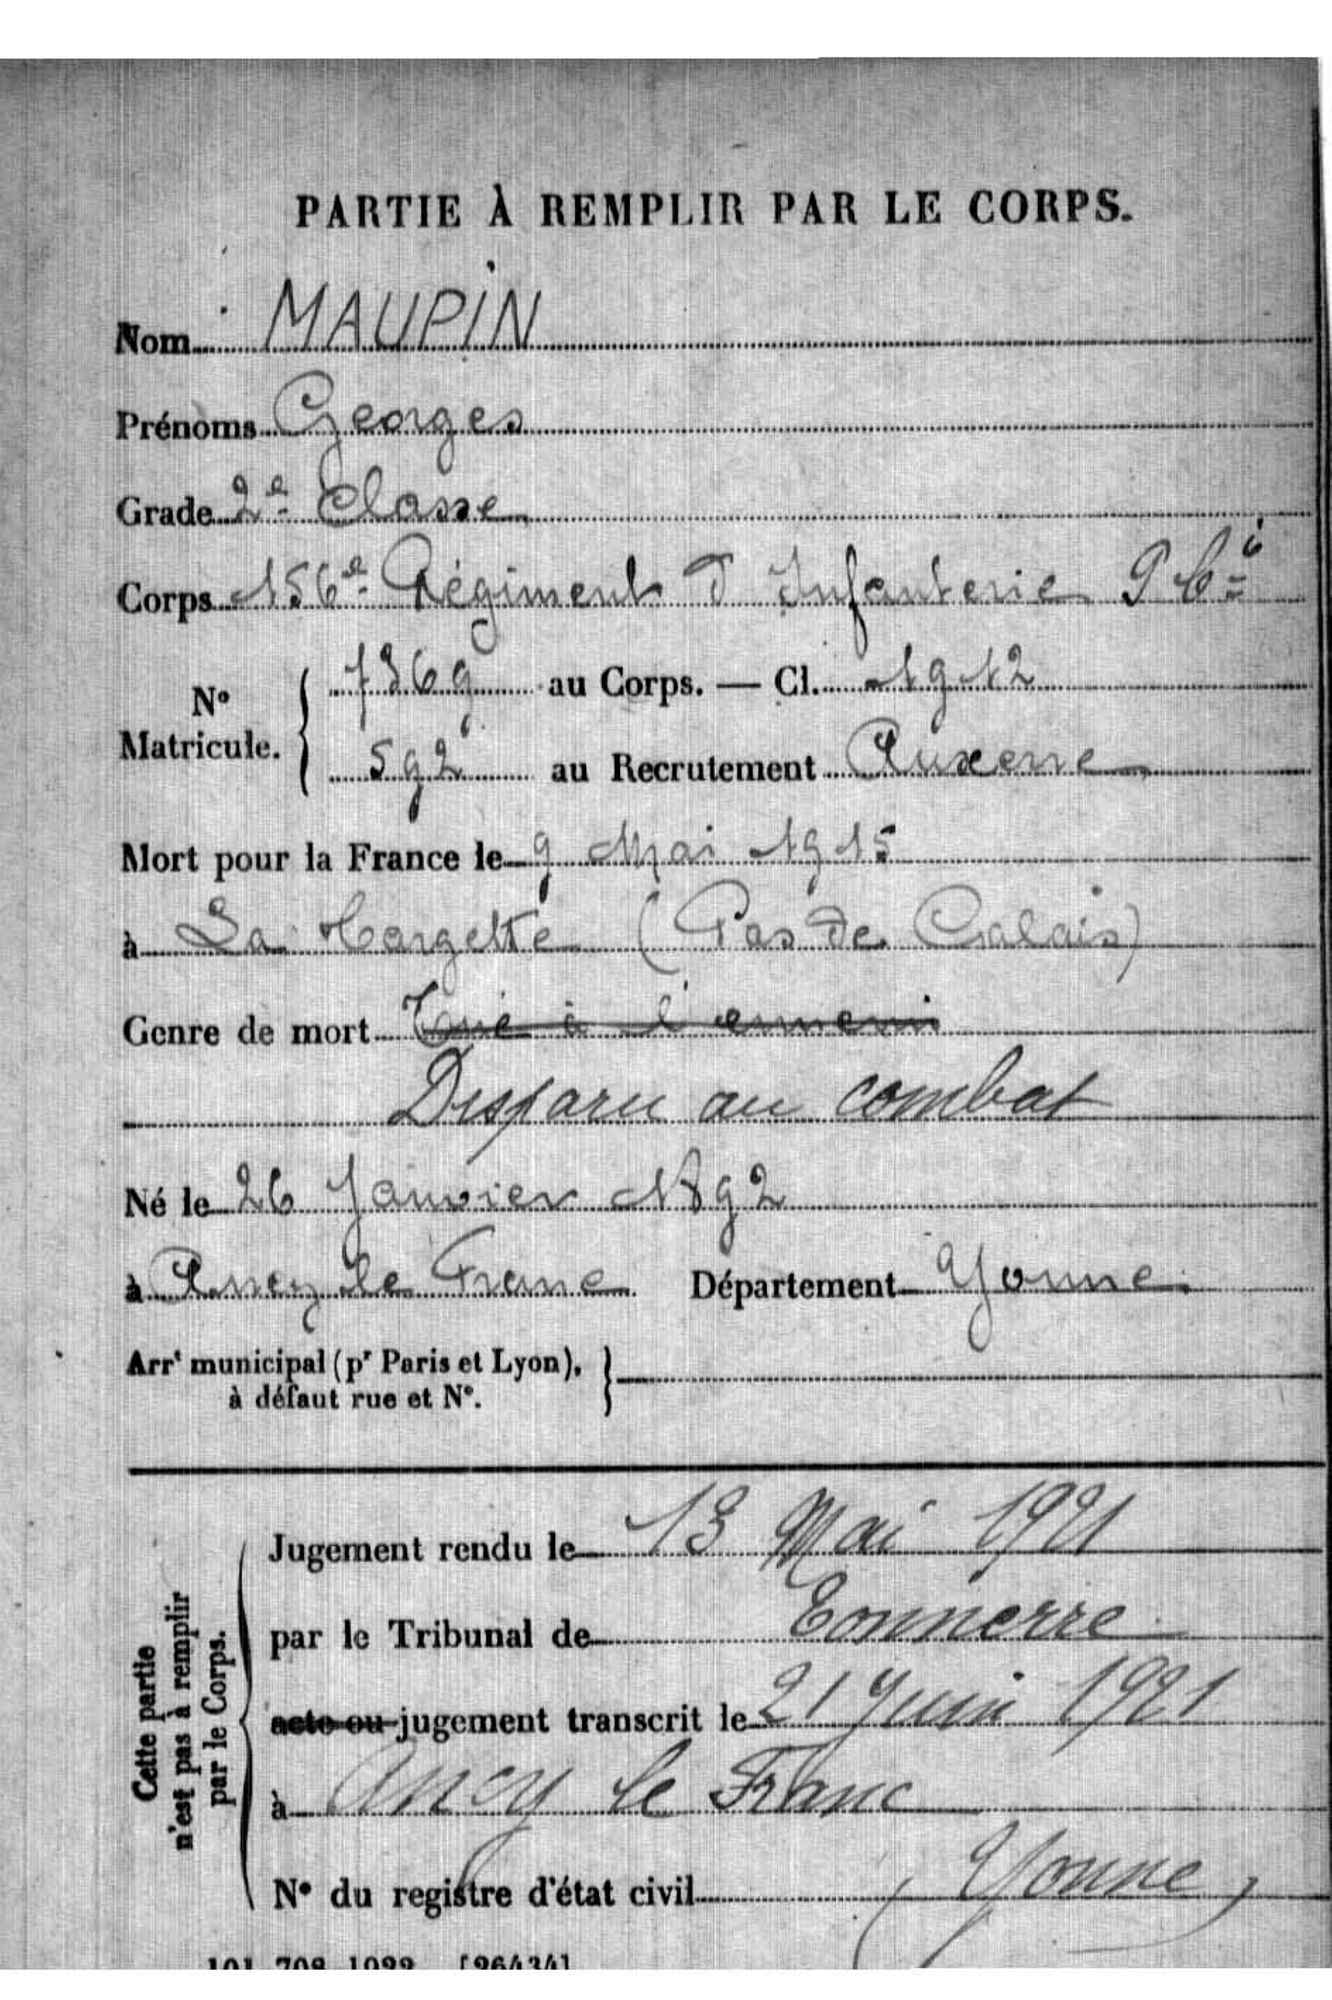 PARTIE À REMPLIR PAR LE CORPS.
Nom MAUPIN
Prénoms Georges
Grade 2e Classe
Corps 156e Régiment d'Infanterie 9 Cie
N° Matricule. 7369 au Corps. — Cl. 1912
592 au Recrutement Auxerre
Mort pour la France le 9 Mai 1915
à La Targette (Pas de Calais)
Genre de mort Tué à l'ennemi
Disparu au combat
Né le 26 Janvier 1892
à Ancy le Franc Département Yonne
Arrt municipal (pr Paris et Lyon),
à défaut rue et N°.
Cette partie
n'est pas à remplir
par le Corps.
Jugement rendu le 13 Mai 1921
par le Tribunal de Tonnerre
acte ou jugement transcrit le 21 Juin 1921
à Ancy le Franc
N° du registre d'état civil (Yonne)
101-708-1922. [26434]